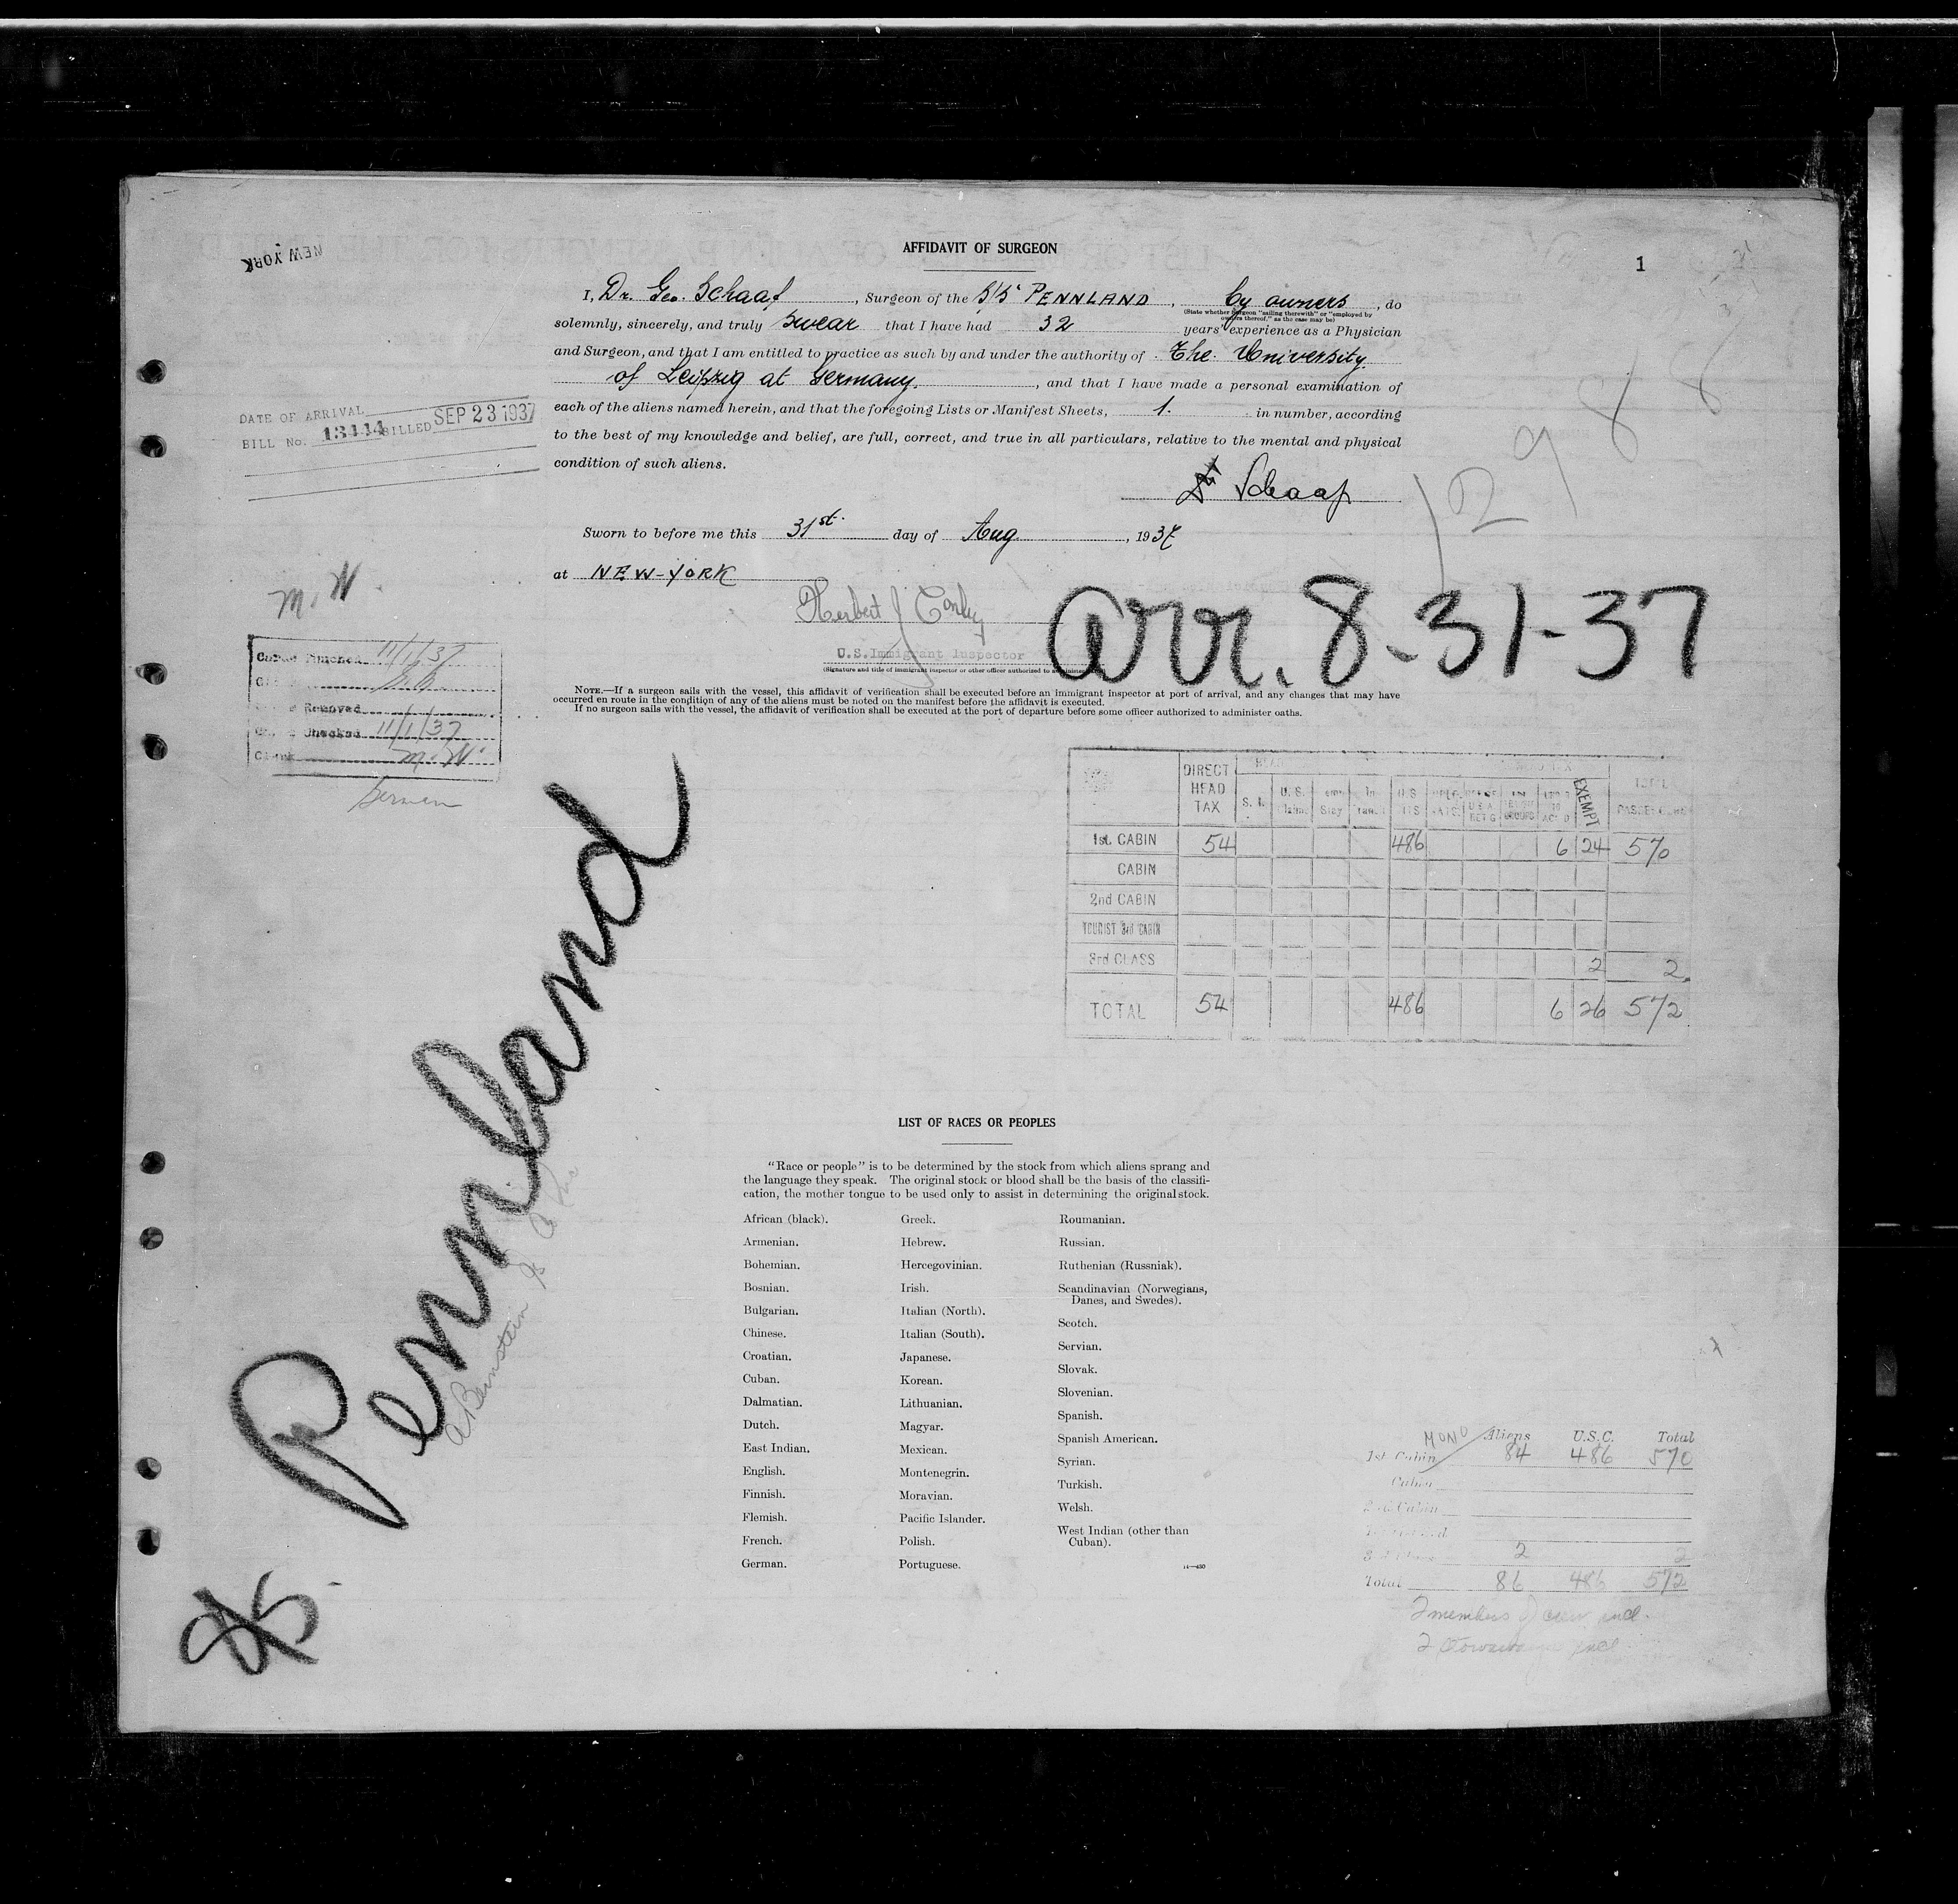 NEW YORK
AFFIDAVIT OF SURGEON
1
I, Dr. Geo. Schaaf, Surgeon of the S/S PENNLAND, by owners, do
(State whether Surgeon "sailing therewith" or "employed by
owners thereof," as the case may be)
solemnly, sincerely, and truly swear that I have had 32 years' experience as a Physician
and Surgeon, and that I am entitled to practice as such by and under the authority of The University
of Leipzig at Germany, and that I have made a personal examination of
each of the aliens named herein, and that the foregoing Lists or Manifest Sheets, 1. in number, according
to the best of my knowledge and belief, are full, correct, and true in all particulars, relative to the mental and physical
condition of such aliens.
DATE OF ARRIVAL
BILL No. 13444 BILLED SEP 23 1937
Dr Schaaf
12988
Sworn to before me this 31st. day of Aug, 1937
at NEW-YORK
Herbert J Conley
U.S. Immigrant Inspector
(Signature and title of immigrant inspector or other officer authorized to administer
arr. 8-31-37
M. W.
Punched 11/1/37
Removed
Checked 11/1/37
Clerk M. W.
NOTE.—If a surgeon sails with the vessel, this affidavit of verification shall be executed before an immigrant inspector at port of arrival, and any changes that may have
occurred en route in the condition of any of the aliens must be noted on the manifest before the affidavit is executed.
If no surgeon sails with the vessel, the affidavit of verification shall be executed at the port of departure before some officer authorized to administer oaths.
DIRECT HEAD TAX S. I. U. S. EXEMPT
1st. CABIN 54 486 6 24 570
CABIN
2nd CABIN
TOURIST 3rd CABIN
3rd CLASS 2 2
TOTAL 54 486 6 26 572
Pennland
A Bernstein
LIST OF RACES OR PEOPLES
"Race or people" is to be determined by the stock from which aliens sprang and
the language they speak. The original stock or blood shall be the basis of the classifi-
cation, the mother tongue to be used only to assist in determining the original stock.
African (black).
Armenian.
Bohemian.
Bosnian.
Bulgarian.
Chinese.
Croatian.
Cuban.
Dalmatian.
Dutch.
East Indian.
English.
Finnish.
Flemish.
French.
German.
Greek.
Hebrew.
Hercegovinian.
Irish.
Italian (North).
Italian (South).
Japanese.
Korean.
Lithuanian.
Magyar.
Mexican.
Montenegrin.
Moravian.
Pacific Islander.
Polish.
Portuguese.
Roumanian.
Russian.
Ruthenian (Russniak).
Scandinavian (Norwegians,
Danes, and Swedes).
Scotch.
Servian.
Slovak.
Slovenian.
Spanish.
Spanish American.
Syrian.
Turkish.
Welsh.
West Indian (other than
Cuban).
MONO Aliens U.S.C. Total
1st Cabin 84 486 570
Cabin
2nd Cabin
3rd Class 2 2
Total 86 486 572
2 members of crew incl.
2 Stowaways incl.